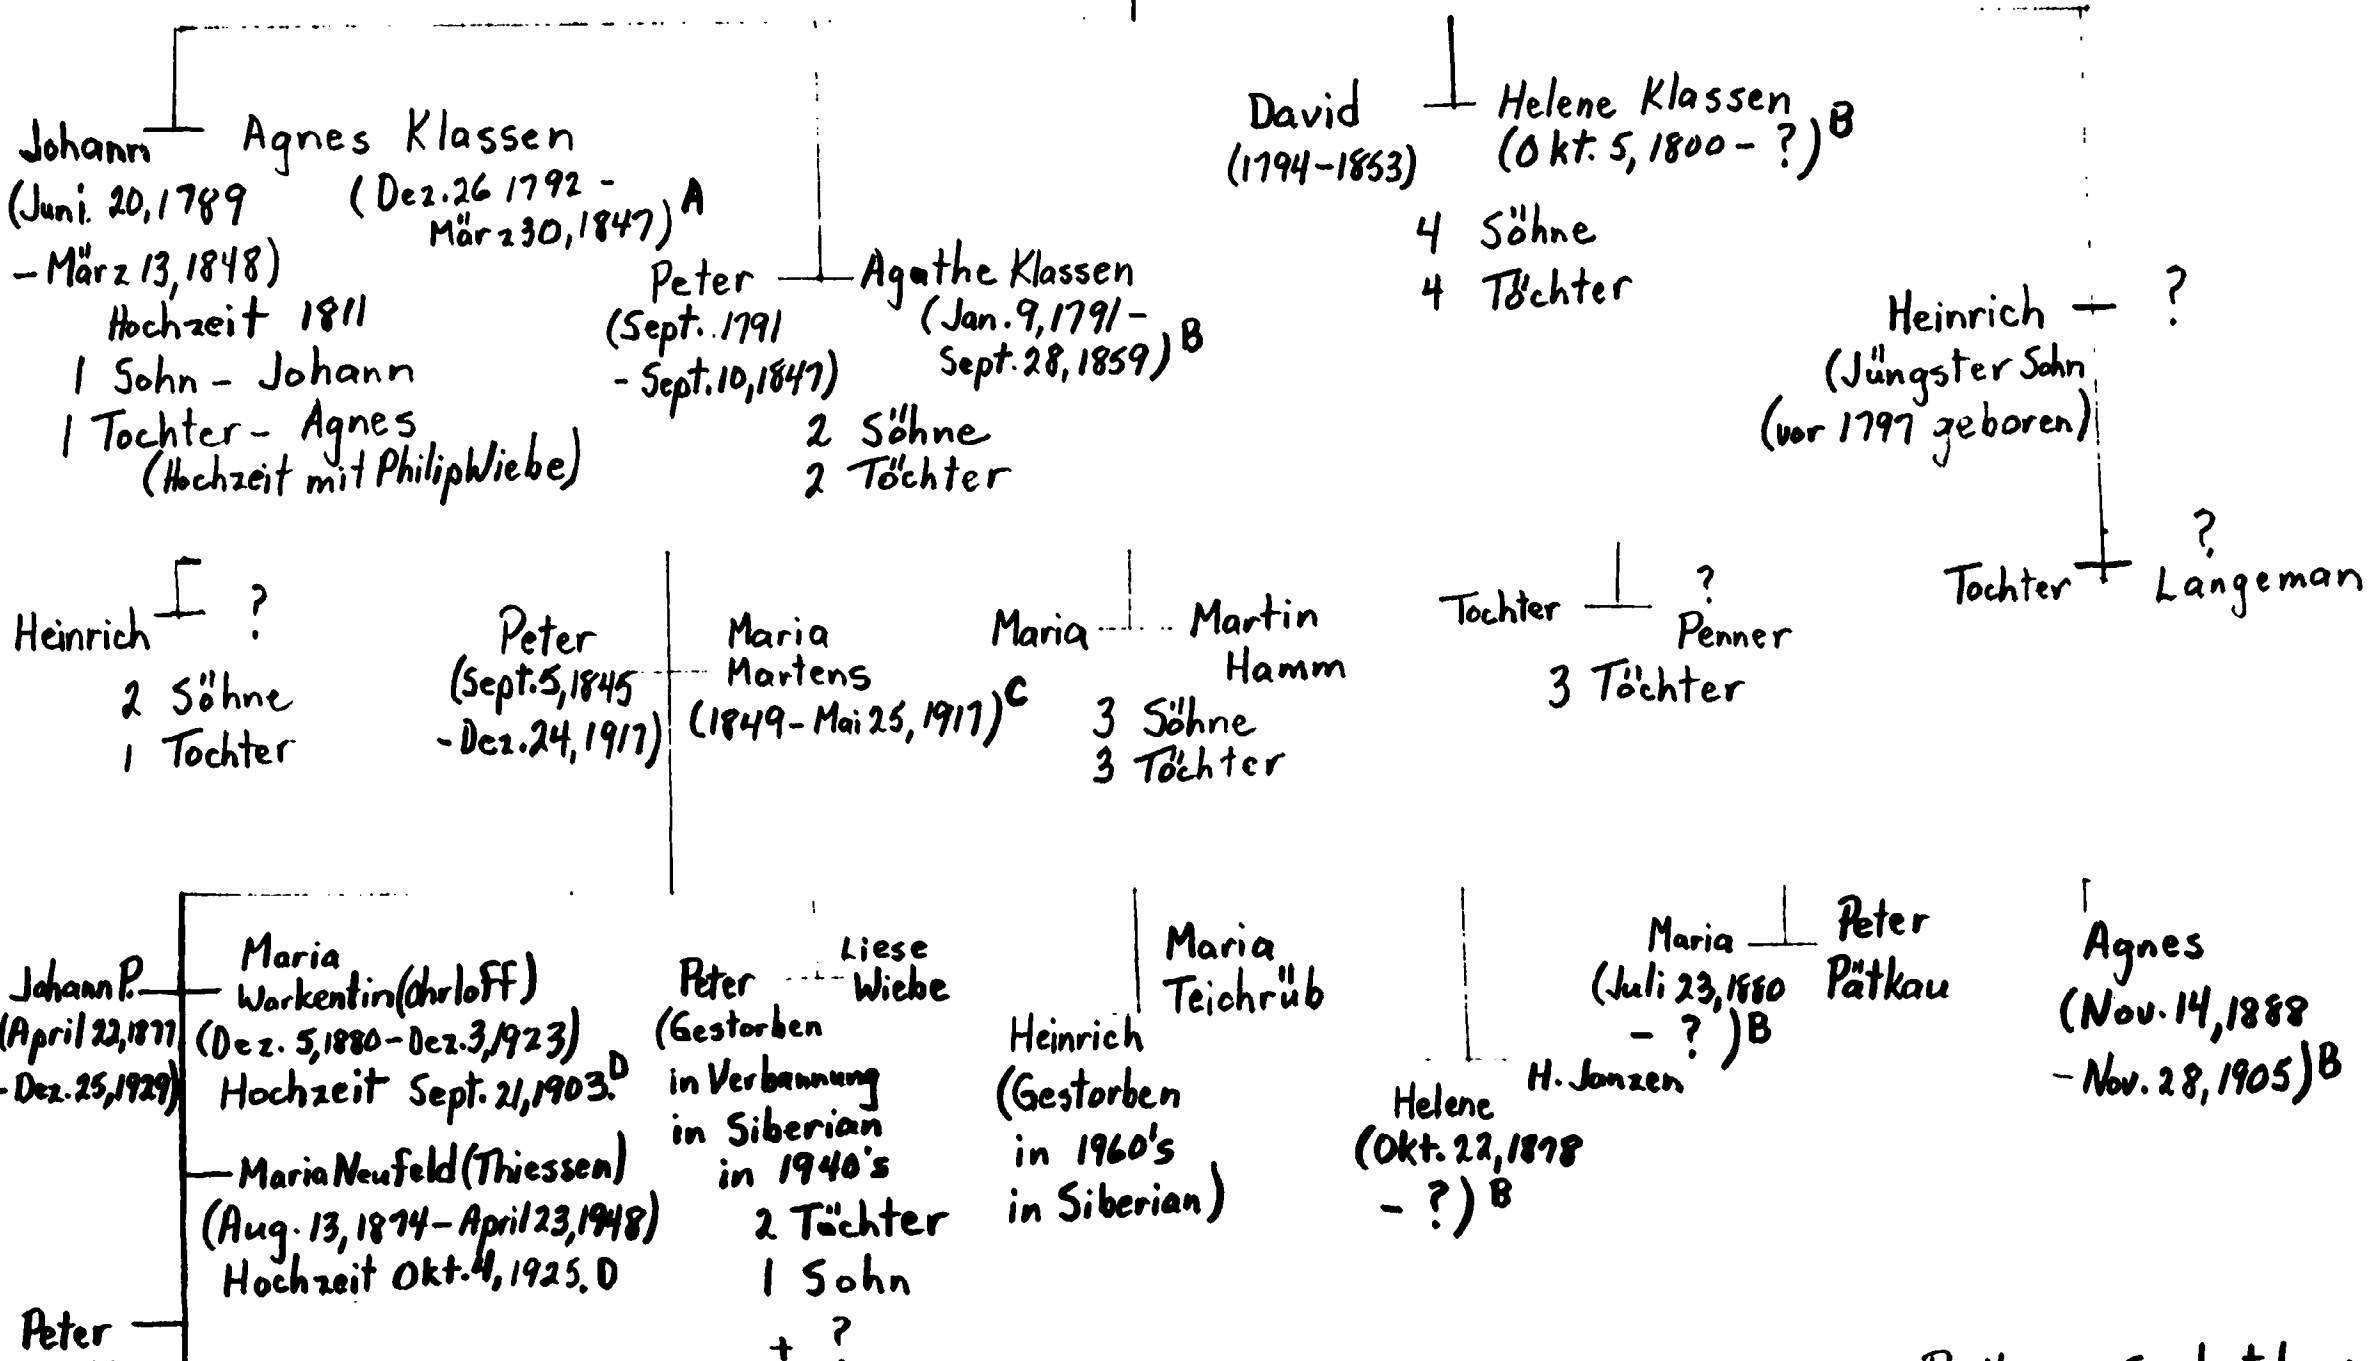 Johann
(Juni. 20,1789
- März 13,1848)
Agnes Klassen
(Dez.26 1792 -
März30,1847) A
Hochzeit 1811
1 Sohn - Johann
1 Tochter - Agnes
(Hochzeit mit Philip Wiebe)
Peter
(Sept. 1791
- Sept.10,1847)
Agathe Klassen
(Jan. 9,1791 -
Sept. 28, 1859) B
2 Söhne
2 Töchter
David
(1794-1853)
Helene Klassen
(Okt. 5, 1800 - ?) B
4 Söhne
4 Töchter
Heinrich
?
(Jüngster Sohn
(vor 1797 geboren)
Heinrich
?
2 Söhne
1 Tochter
Peter
(Sept.5,1845
- Dez.24, 1917)
Maria
Martens
(1849 - Mai 25, 1917) C
Maria
Martin
Hamm
3 Söhne
3 Töchter
Tochter
?
Penner
3 Töchter
Tochter
?
Langeman
Johann P.
(April 22,1877
- Dez. 25,1929)
Maria
Warkentin (Ohrloff)
(Dez. 5,1880 - Dez.3,1923)
Hochzeit Sept. 21,1903. D
Maria Neufeld (Thiessen)
(Aug. 13, 1874 - April 23,1948)
Hochzeit Okt. 4, 1925. D
Peter
Peter
Liese
Wiebe
(Gestorben
in Verbannung
in Siberian
in 1940's
2 Töchter
1 Sohn
?
+
Maria
Teichrüb
Heinrich
(Gestorben
in 1960's
in Siberian)
H. Janzen
Helene
(Okt. 22,1878
- ?) B
Maria
(Juli 23,1880
- ?) B
Peter
Pätkau
Agnes
(Nov. 14,1888
- Nov. 28, 1905) B